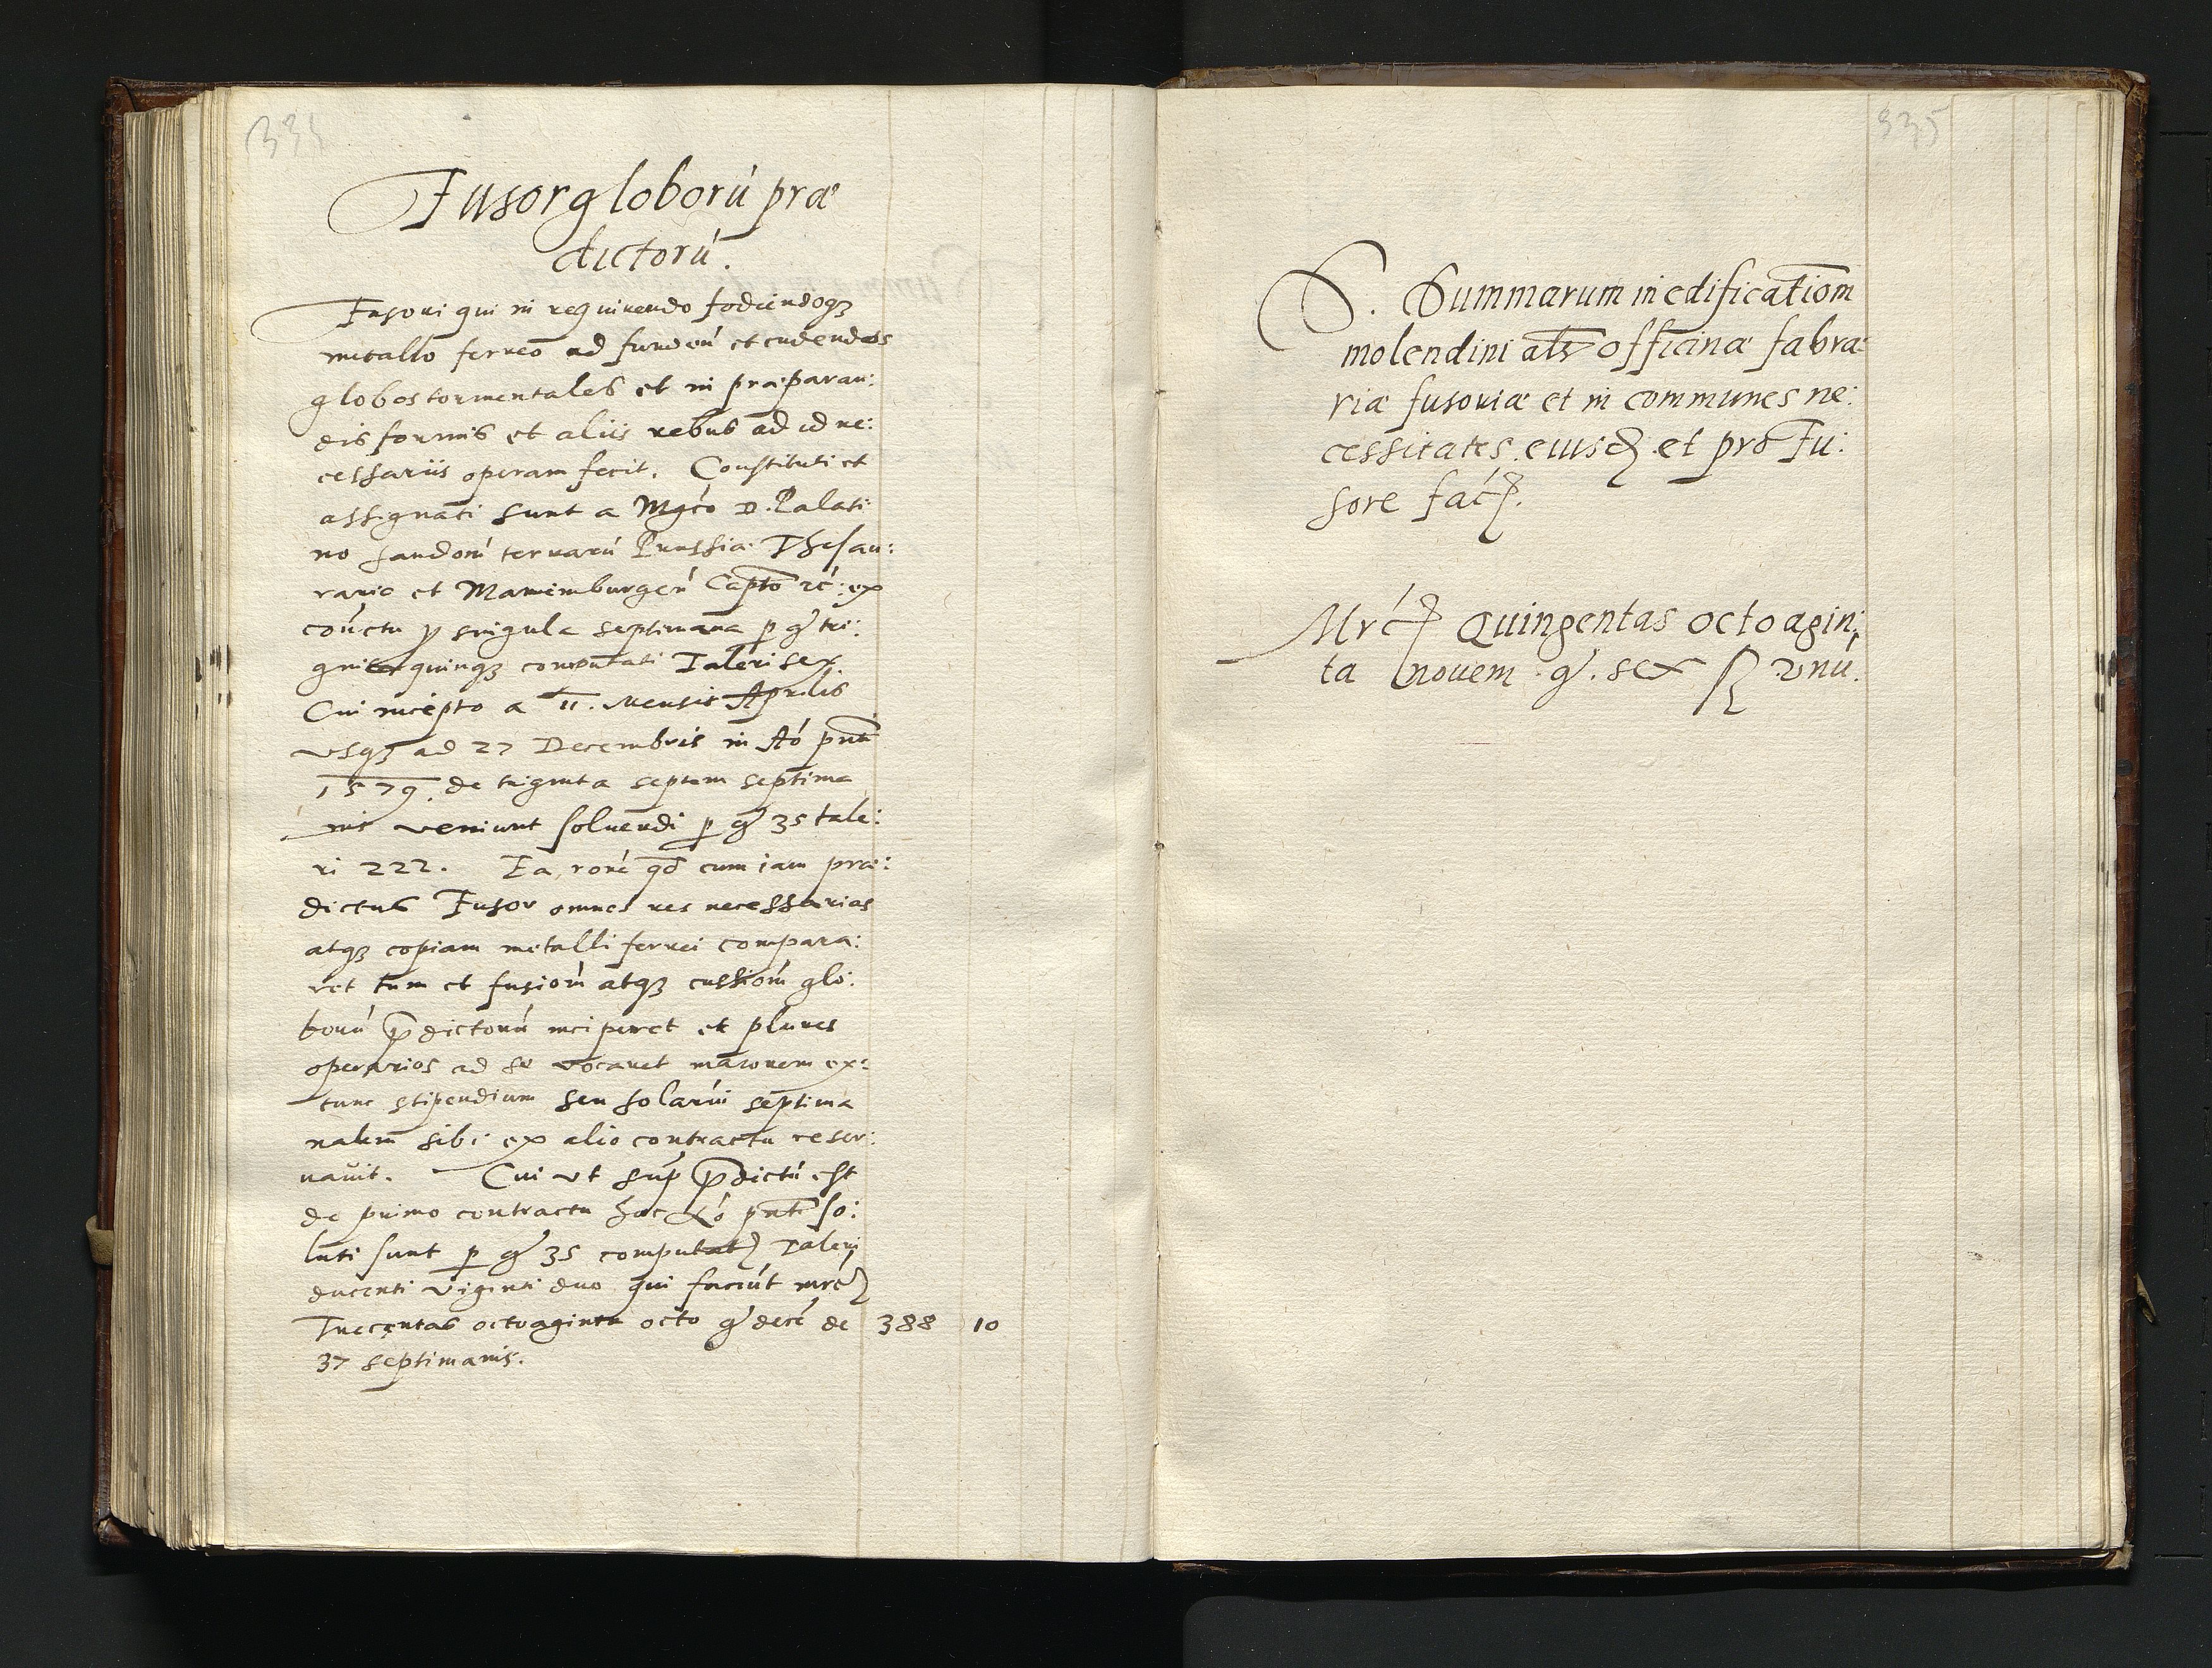 334
Fusor gloború præ
dictorú.
Fusori qui in requirendo fodiendoqȝ
metallo ferreo ad fundeń et cudendos
globos tormentales et in præparan:
dis formis et aliis rebus ad id ne:
cessariis operam fecit. Constituti et
assignati sunt a Mgćo D. Palati:
no Sandom̄ terrarú Prussiæ Thesau:
rario et Marieimburgeń Capto ꝛć: ex
cońctu ꝓ singula septimana p gr tri:
ginta quinqȝ computati Taleri sex.
Cui incepto a 11. Mensis Aprilis
vsqȝ ad 27 Decembris in Aó pñti
1579. de triginta septem septima
nis veniunt soluendi p gr 35 tale:
ri 222. Ea roné qd cum iam præ:
dictus Fusor omnes res necessarias
atqȝ copiam metalli ferrei compara:
ret tum et fusioń atqȝ cussioń glo:
ború p̄dictorú inciperet et plures
operarios ad se vocaret maiorem ex:
tunc stipendium seu solariú septima
nalem sibi ex alio contractu reser:
uauit. Cui vt sup p̄dictú est
de primo contractu hac Ró pñti so:
luti sunt p gr 35 computat Taleri
ducenti viginti duo qui faciút mrć
Trecentas octoaginta octo gr decé de 388 10
37 septimanis.
335
S. Summarum in edificatiom
molendini als officinæ fabra:
riæ fusoriæ et in communes ne:
cessitates eiusd et pro Fu:
sore fać.
Mrć Quingentas octoagin:
ta nouem gr. sex ß vnú.